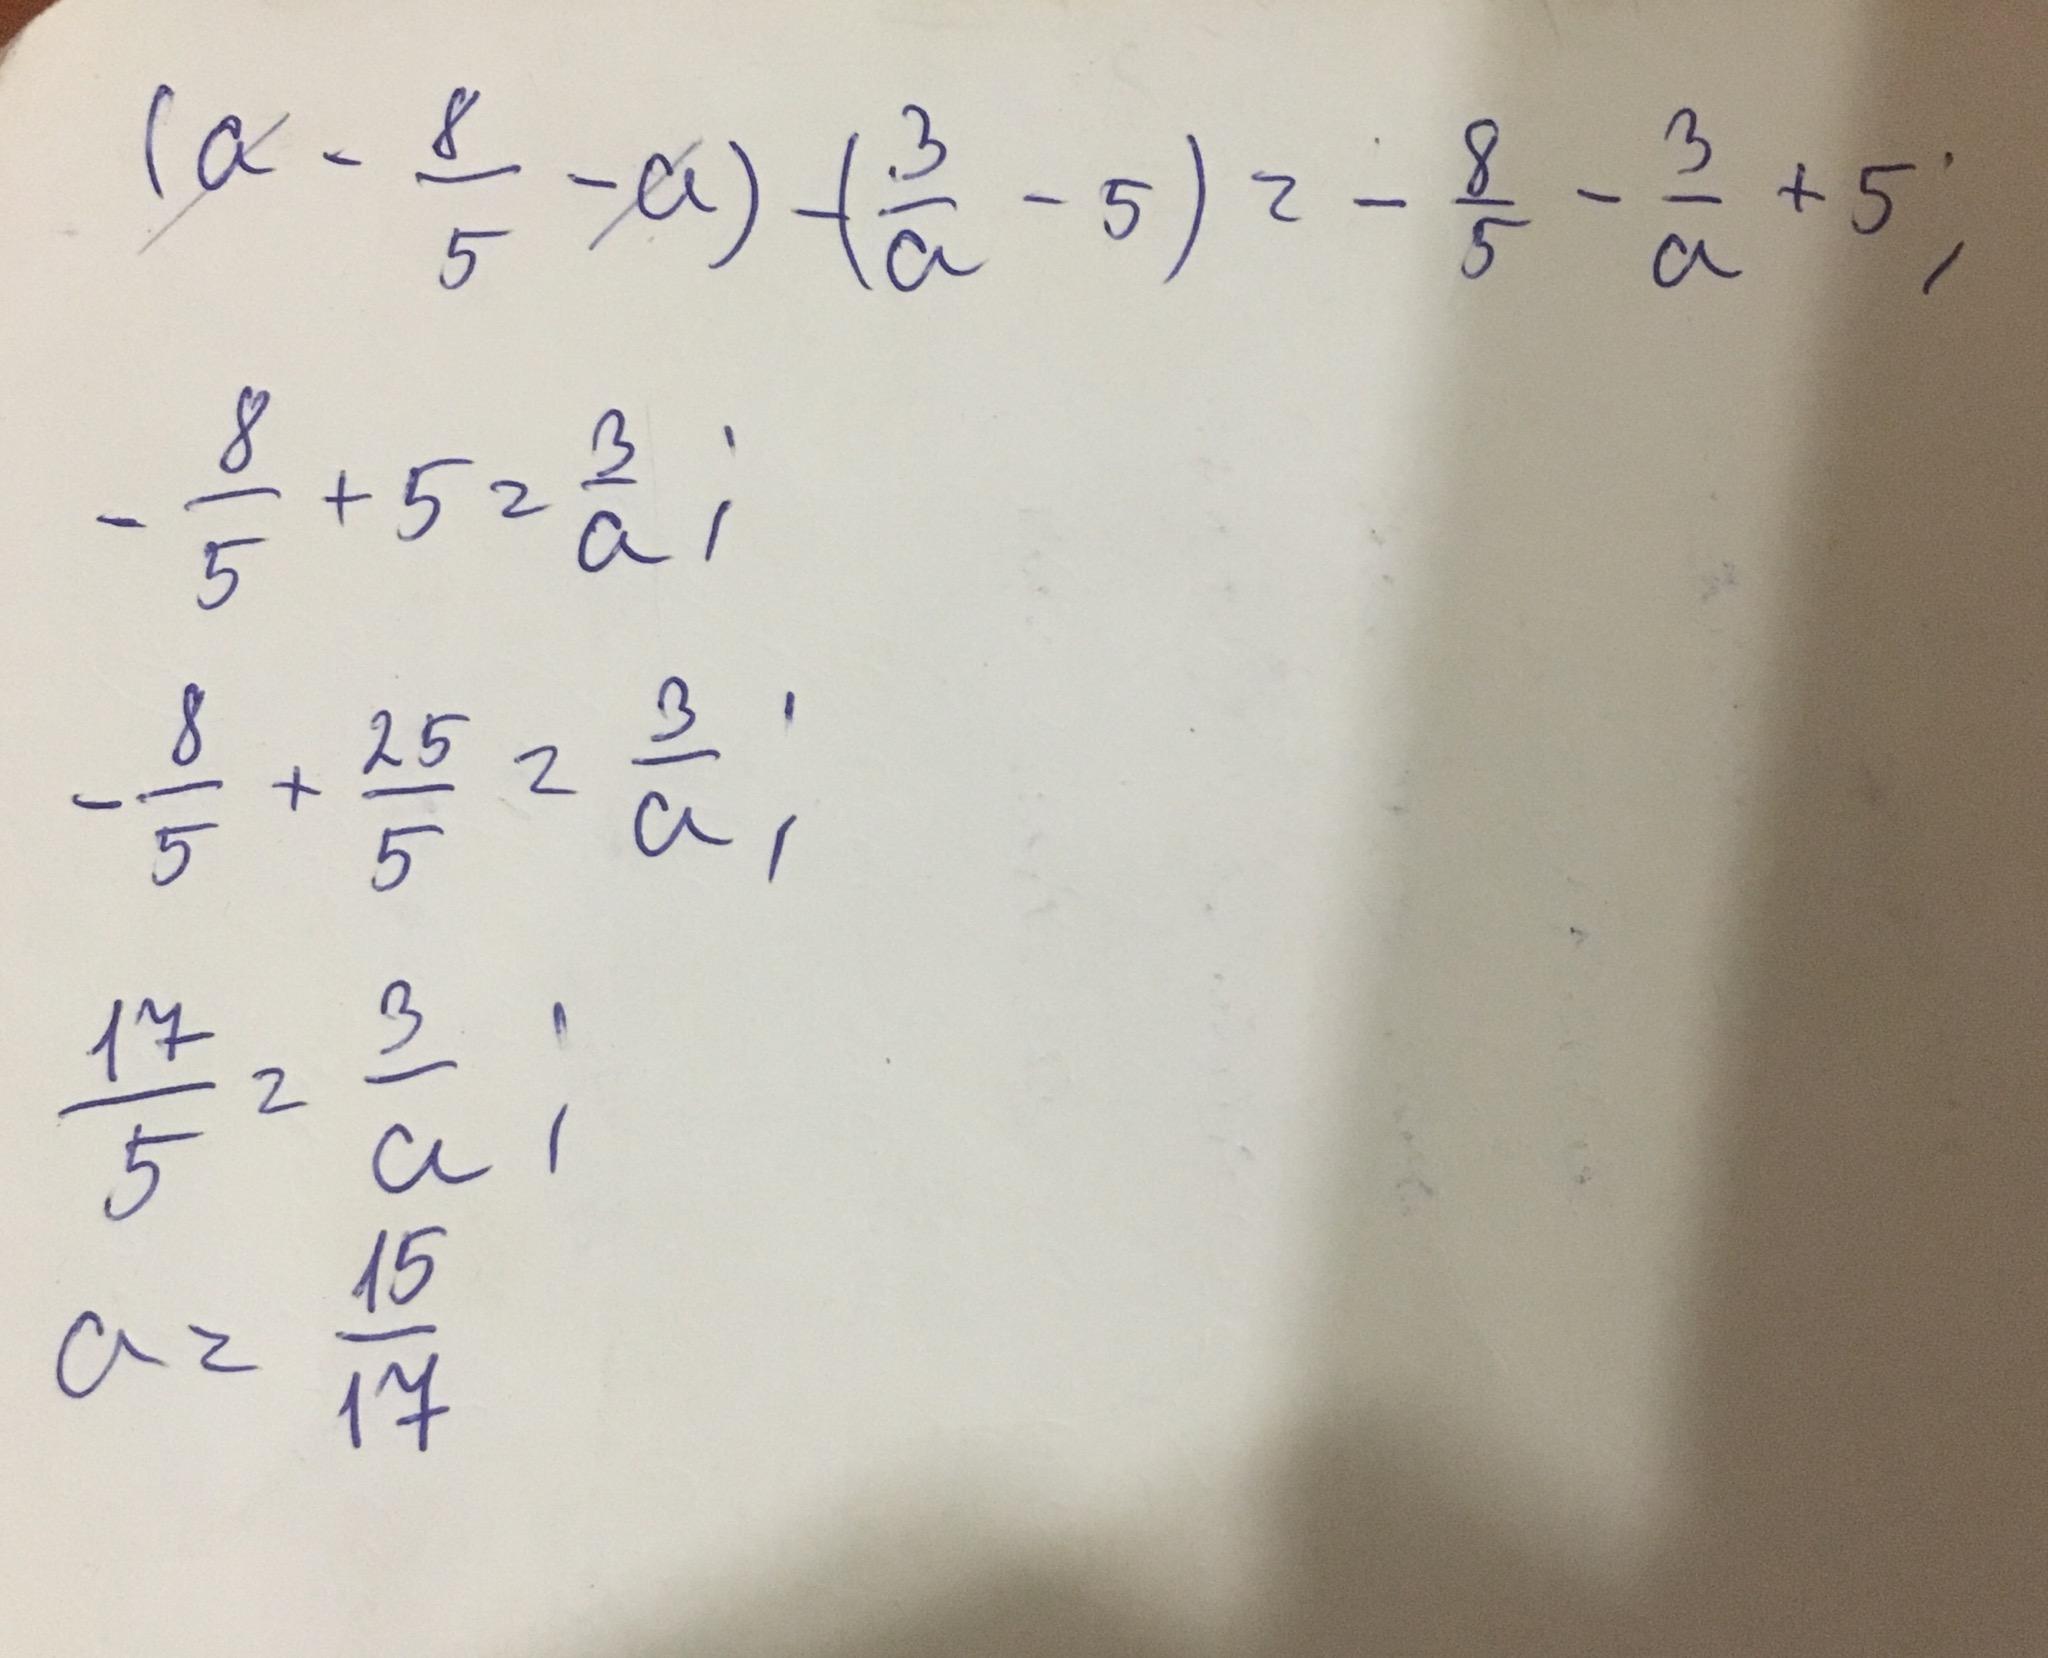 (a - 8/5 - a) - (3/a - 5) = - 8/5 - 3/a + 5;
- 8/5 + 5 = 3/a;
- 8/5 + 25/5 = 3/a;
17/5 = 3/a;
a = 15/17